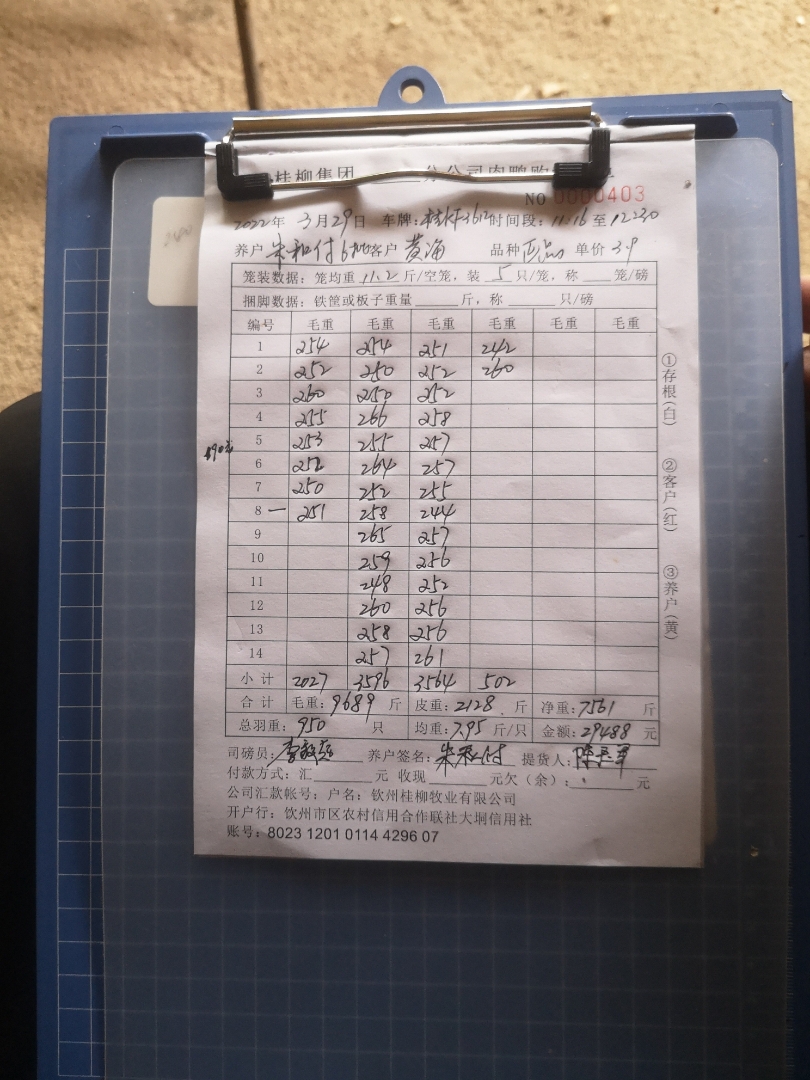 桂柳集团 分公司肉鸭购
NO 0000403
2022年 3月29日 车牌: 时间段: 11:16 至 12:30
养户 朱和付 客户 黄海 品种 正品 单价 3.9
笼装数据: 笼均重 11.2 斤/空笼, 装 5 只/笼, 称 笼/磅
捆脚数据: 铁筐或板子重量 斤, 称 只/磅
编号 毛重 毛重 毛重 毛重 毛重 毛重
1 254 254 251 242
2 252 250 252 260
3 260 250 252
4 255 266 258
5 253 255 257
6 252 264 257
7 250 252 255
8 一 251 258 244
9 265 257
10 259 256
11 248 252
12 260 256
13 258 256
14 257 261
小计 2027 3596 3564 502
合计 毛重: 9689 斤 皮重: 2128 斤 净重: 7561 斤
总羽重: 950 只 均重: 7.95 斤/只 金额: 29488 元
司磅员: 养户签名: 朱和付 提货人:
付款方式: 汇 元 收现 元欠(余): 元
公司汇款帐号: 户名: 钦州桂柳牧业有限公司
开户行: 钦州市区农村信用合作联社大垌信用社
账号: 8023 1201 0114 4296 07
①存根(白)
②客户(红)
③养户(黄)